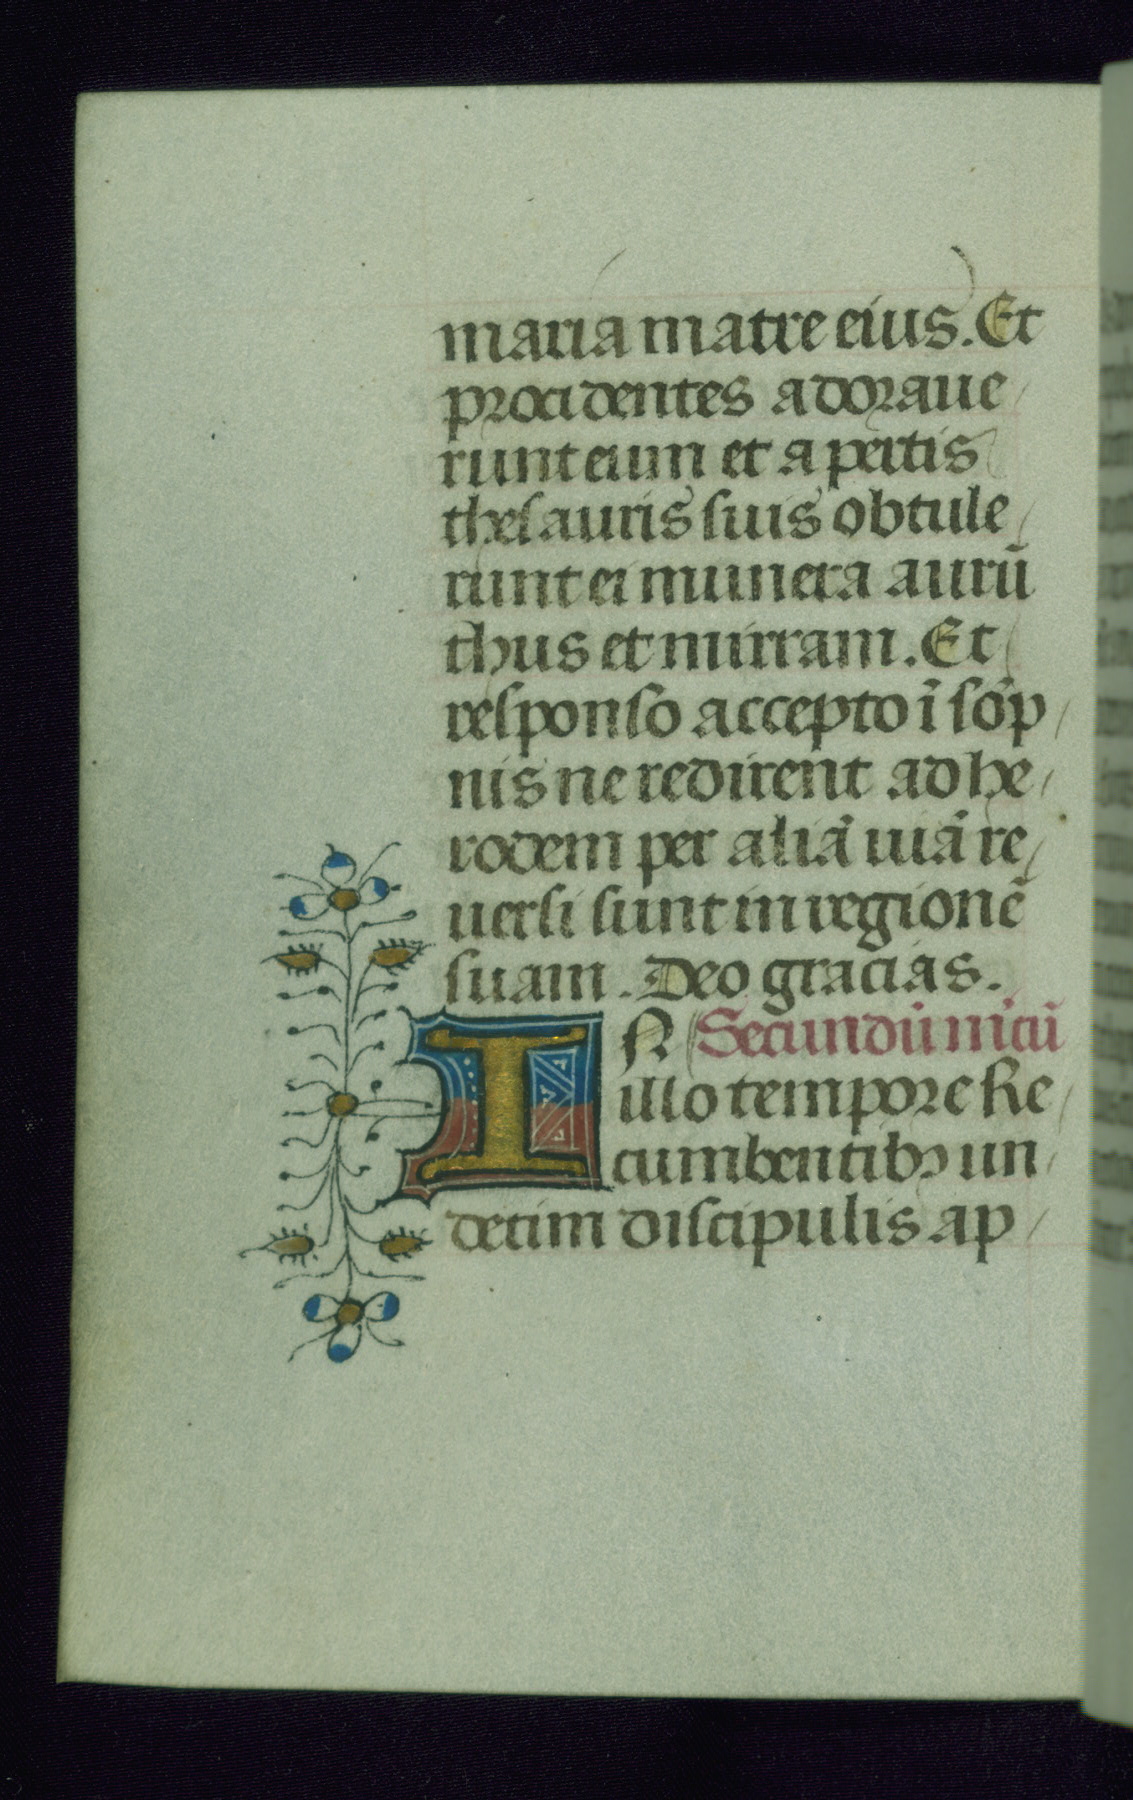 maria matre eius. Et
procidentes adoraue
runt eum et apertis
thesauris suis obtule
runt ei munera aurū
thus et mirram. Et
responso accepto ī sōp
nis ne redirent ad he
rodem per aliā uiā re
uersi sunt in regionē
suam. Deo gracias.
IN Secundū m̄cū
illo tempore Re
cumbentibꝰ un
decim discipulis ap